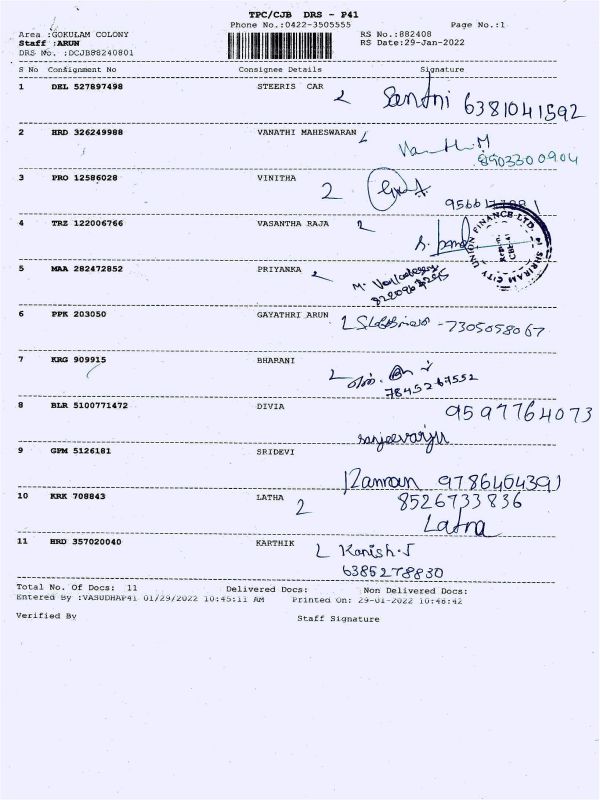 TPC/CJB DRS - P41
Phone No.:0422-3505555 Page No.:1
Area :GOKULAM COLONY RS No.:882408
Staff :ARUN RS Date:29-Jan-2022
DRS No. :DCJB88240801
S No Consignment No Consignee Details Signature
1 DEL 527897498 STEERIS CAR Santhi 6381041592
2 HRD 326249988 VANATHI MAHESWARAN
8903300904
3 PRO 12586028 VINITHA
4 TRZ 122006766 VASANTHA RAJA
SHRIRAM CITY UNION FINANCE LTD.
5 MAA 282472852 PRIYANKA
6 PPK 203050 GAYATHRI ARUN 7305058067
7 KRG 909915 BHARANI
7845267552
8 BLR 5100771472 DIVIA 9597764073
sanjeevarju
9 GPM 5126181 SRIDEVI
9786464391
10 KRK 708843 LATHA 8526733836
Latha
11 HRD 357020040 KARTHIK Kanish.J
6385278830
Total No. Of Docs: 11 Delivered Docs: Non Delivered Docs:
Entered By :VASUDHAP41 01/29/2022 10:45:11 AM Printed On: 29-01-2022 10:46:42
Verified By Staff Signature